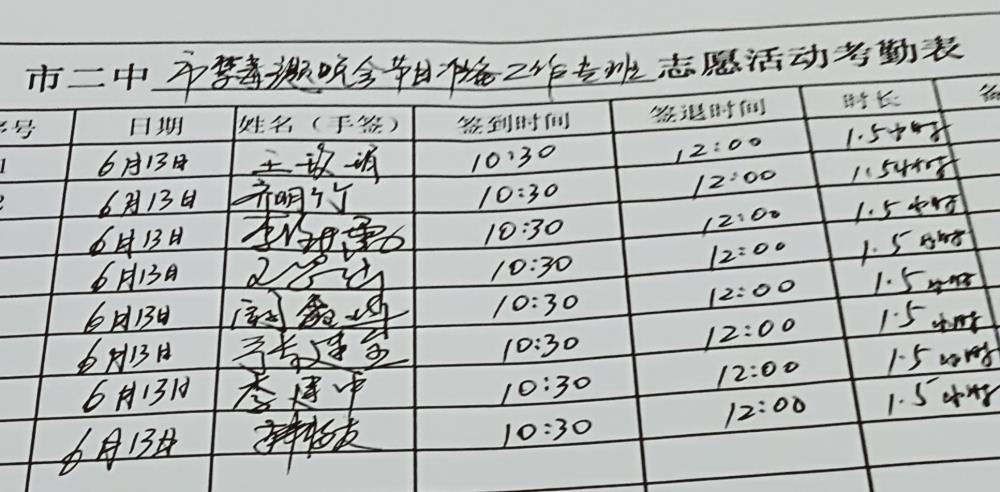 市二中 市禁毒主题晚会节目准备工作专班 志愿活动考勤表
号 日期 姓名（手签） 签到时间 签退时间 时长
1 6月13日 10:30 12:00 1.5小时
2 6月13日 齐明竹 10:30 12:00 1.5小时
6月13日 10:30 12:00 1.5小时
6月13日 10:30 12:00 1.5小时
6月13日 10:30 12:00 1.5小时
6月13日 10:30 12:00 1.5小时
6月13日 李建中 10:30 12:00 1.5小时
6月13日 10:30 12:00 1.5小时